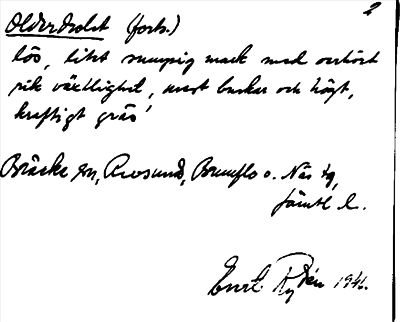 2
Olderdalet (forts.)
lös, litet sumpig mark med oerhört
rik växtlighet, mest buskar och högt,
kraftigt gräs'
Bräcke sn, Revsund, Brunflo o. Näs tg,
Jämtl l.
Curt Rydén 1946.